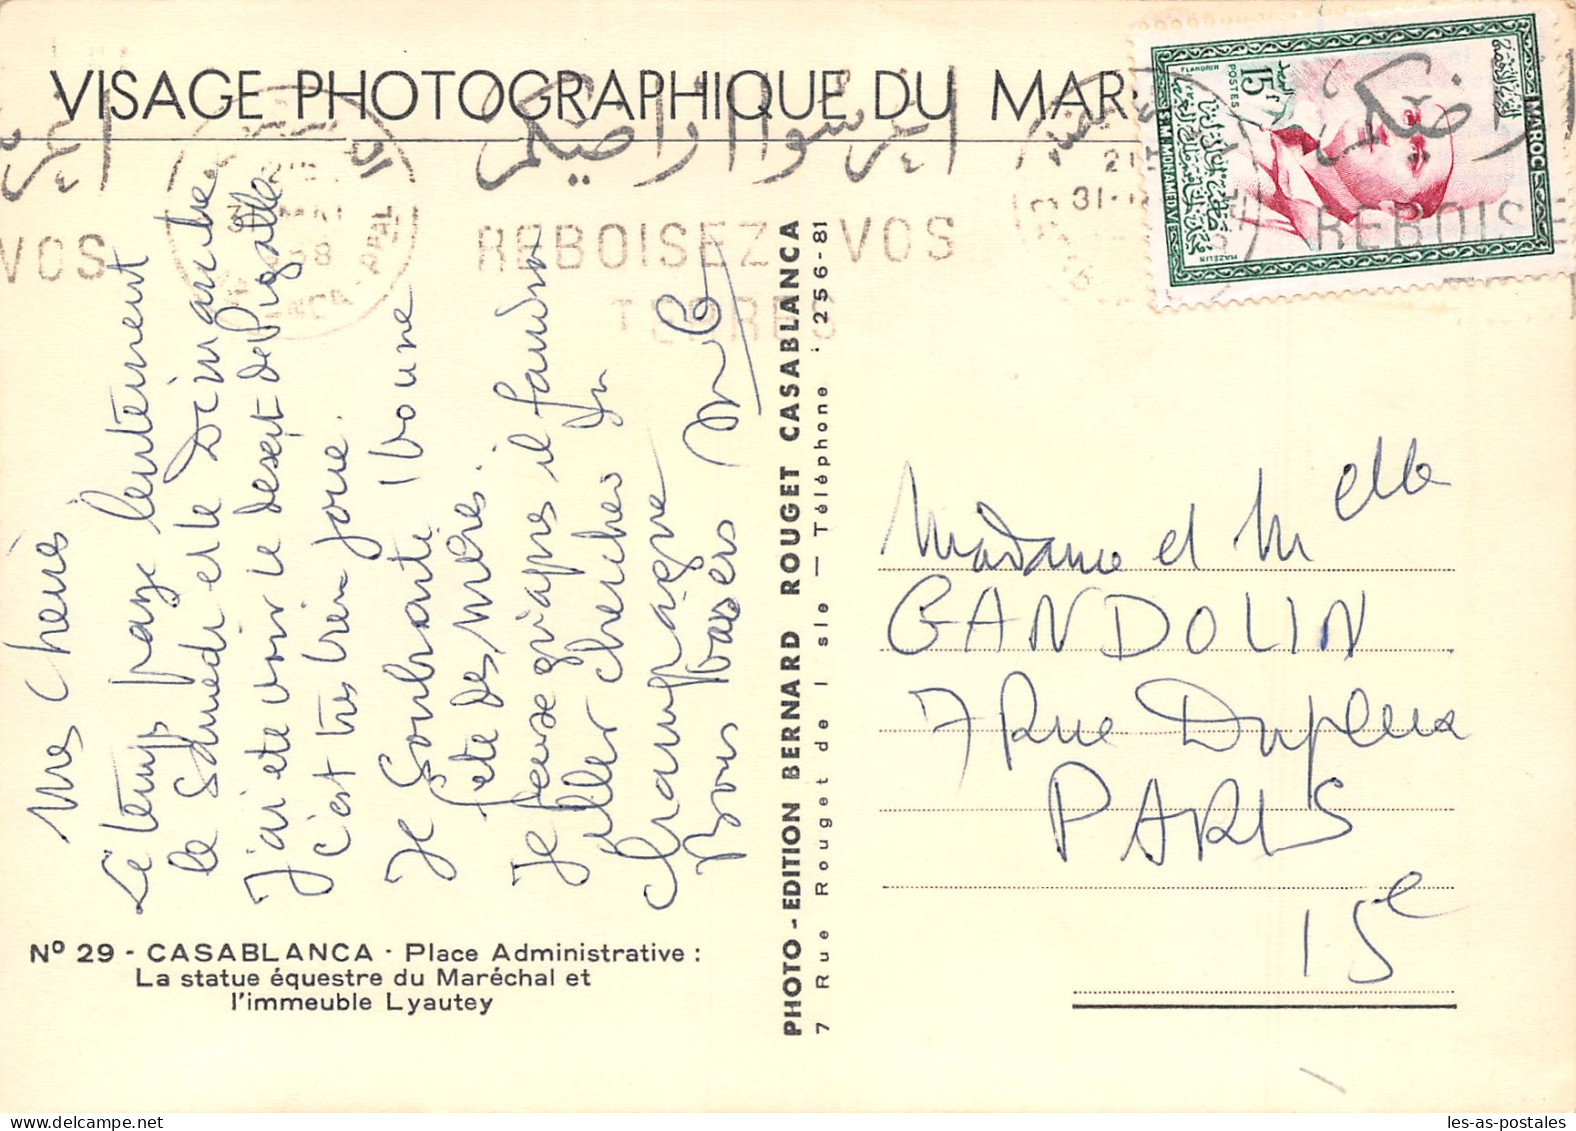 VISAGE PHOTOGRAPHIQUE DU MAR
15F
POSTES
MAROC
S.M. MOHAMED V
MAZELIN
احرسوا اراضيكم
REBOISEZ VOS
TERRES
21
31
REBOISE
VOS
58
Mes Chéries
Le temps passe lentement
le Samedi et le Dimanche
J'ai été voir le desert de Pigalle
c'est très bien joué.
Je Souhaite bonne
fete des mères.
Je pense qu'apres il faudra
aller chercher du
champagne
Bons baisers
N° 29 - CASABLANCA - Place Administrative :
La statue équestre du Maréchal et
l'immeuble Lyautey
PHOTO - EDITION BERNARD ROUGET CASABLANCA
7 Rue Rouget de l'Isle — Téléphone : 256-81
Madame et Melle
GANDOLIN
7 Rue Dupleix
PARIS
15e
les-as-postales